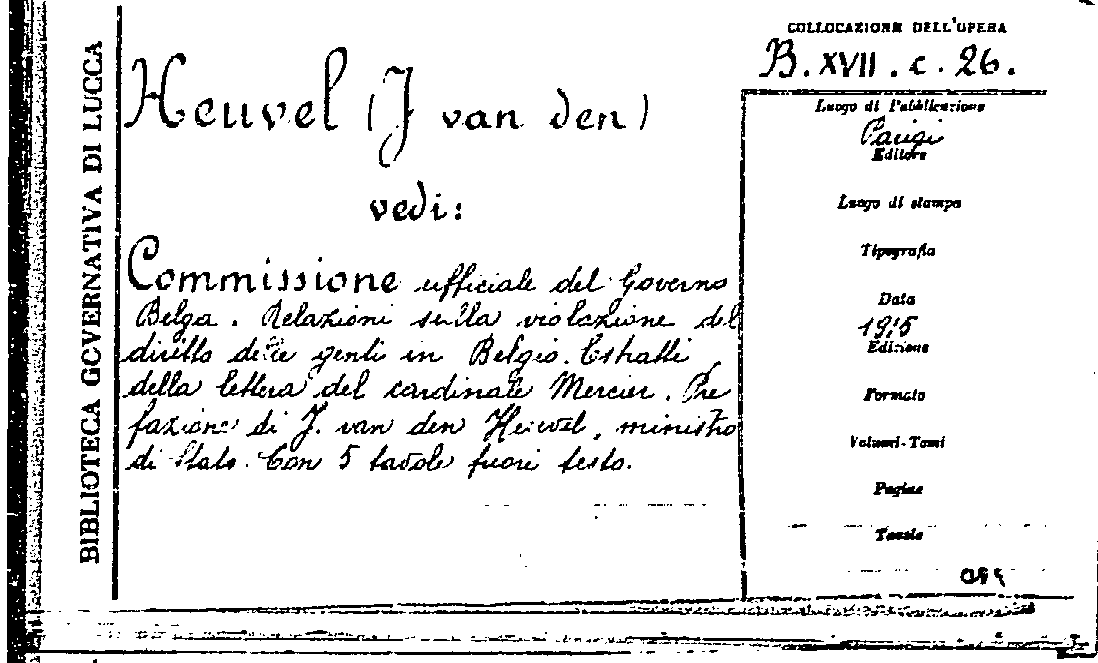 BIBLIOTECA GOVERNATIVA DI LUCCA
Heuvel (J van den)
vedi:
Commissione ufficiale del Governo
Belga. Relazioni sulla violazione del
diritto delle genti in Belgio. Estratti
della lettera del cardinale Mercier. Pre
fazione di J. van den Heuvel, ministro
di Stato. Con 5 tavole fuori testo.
COLLOCAZIONE DELL'OPERA
B. XVII. c. 26.
Luogo di Pubblicazione
Parigi
Editore
Luogo di stampa
Tipografia
Data
1915
Edizione
Formato
Volumi-Tomi
Pagine
Tavole